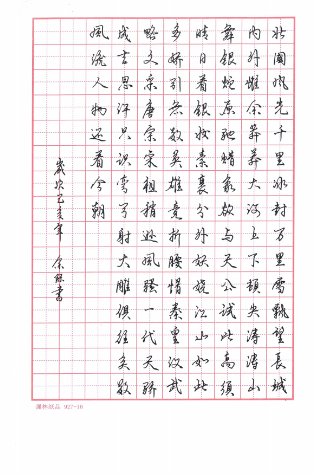 北國风光千里冰封万里雪飘望長城
内外惟余莽莽大河上下頓失滔滔山
舞银蛇原驰蜡象欲与天公试比高須
晴日看银妆素裹分外妖娆江山如此
多娇引无数英雄竞折腰惜秦皇汉武
略文采唐宗宋祖稍逊風騷一代天骄
成吉思汗只识弯弓射大雕俱往矣数
風流人物还看今朝
岁次己亥年 余 书
927-16